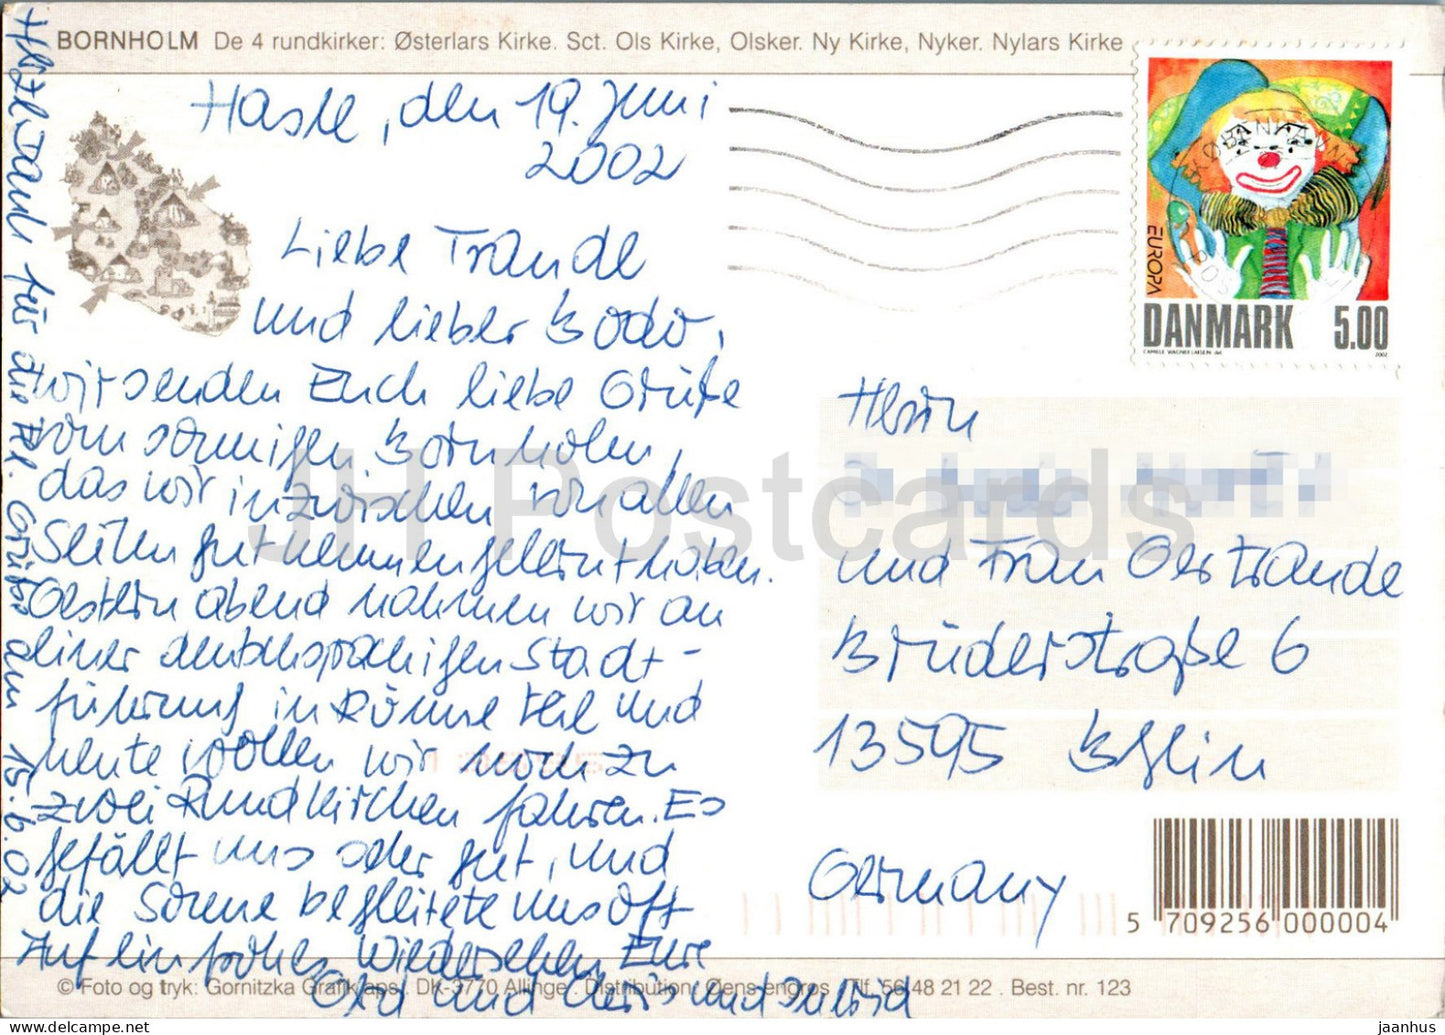 BORNHOLM De 4 rundkirker: Østerlars Kirke. Sct. Ols Kirke, Olsker. Ny Kirke, Nyker. Nylars Kirke
Hasle, den 19. Juni
2002
Liebe Traude
und lieber Bodo,
wir senden Euch liebe Grüße
vom sonnigen Bornholm,
das wir inzwischen von allen
Seiten gut kennengelernt haben.
Gestern abend nahmen wir an
einer deutschsprachigen Stadt-
führung in Rönne teil und
heute wollen wir noch zu
zwei Rundkirchen fahren. Es
gefällt uns sehr gut, und
die Sonne begleitete uns oft
Auf ein frohes Wiedersehen Eure
und Chris und
Herzl. Dank für die tel. Grüße am 15.6.02
EUROPA
DANMARK 5.00
CAMILLE WAGNER LARSEN del. 2002
KØBENHAVN
Herrn
und Frau Gertraude
Brüderstraße 6
13595 Berlin
Germany
5 709256 000004
© Foto og tryk: Gornitzka Grafik aps . DK-3770 Allinge . Distribution: Øens engros . Tlf. 56 48 21 22 . Best. nr. 123
JH Postcards
jaanhus on Delcampe.net